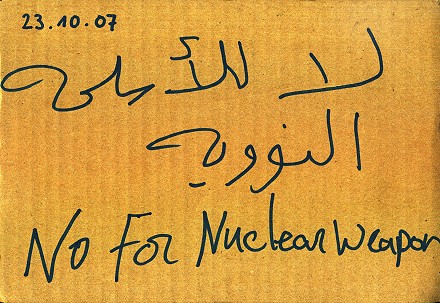 23.10.07
لا للأسلحة
النووية
No For Nuclear Weapon